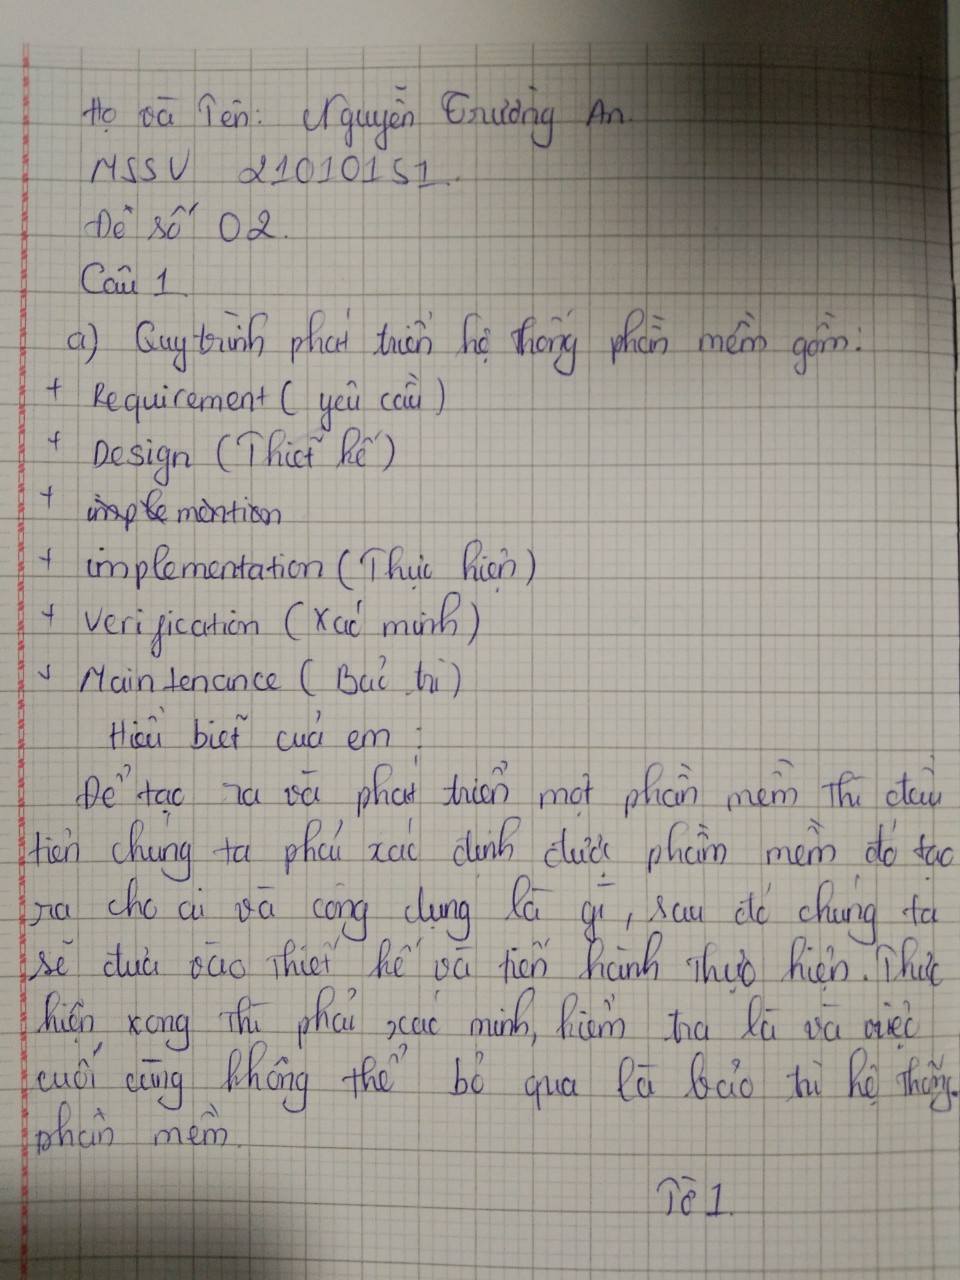 Họ và Tên: Nguyễn Trường An.
MSSV 21010151.
Đề số 02.
Câu 1
a) Quy trình phát triển hệ thống phần mềm gồm:
+ Requirement (yêu cầu)
+ Design (Thiết kế)
+ implemention
+ implementation (Thực hiện)
+ Verification (Xác minh)
+ Maintenance (Bảo trì)
Hiểu biết của em :
Để tạo ra và phát triển một phần mềm thì đầu
tiên chúng ta phải xác định được phần mềm đó tạo
ra cho ai và công dụng là gì, sau đó chúng ta
sẽ đưa vào thiết kế và tiến hành thực hiện. Thực
hiện xong thì phải xác minh, kiểm tra lã và việc
cuối cùng không thể bỏ qua là bảo trì hệ thống
phần mềm.
Tờ 1.